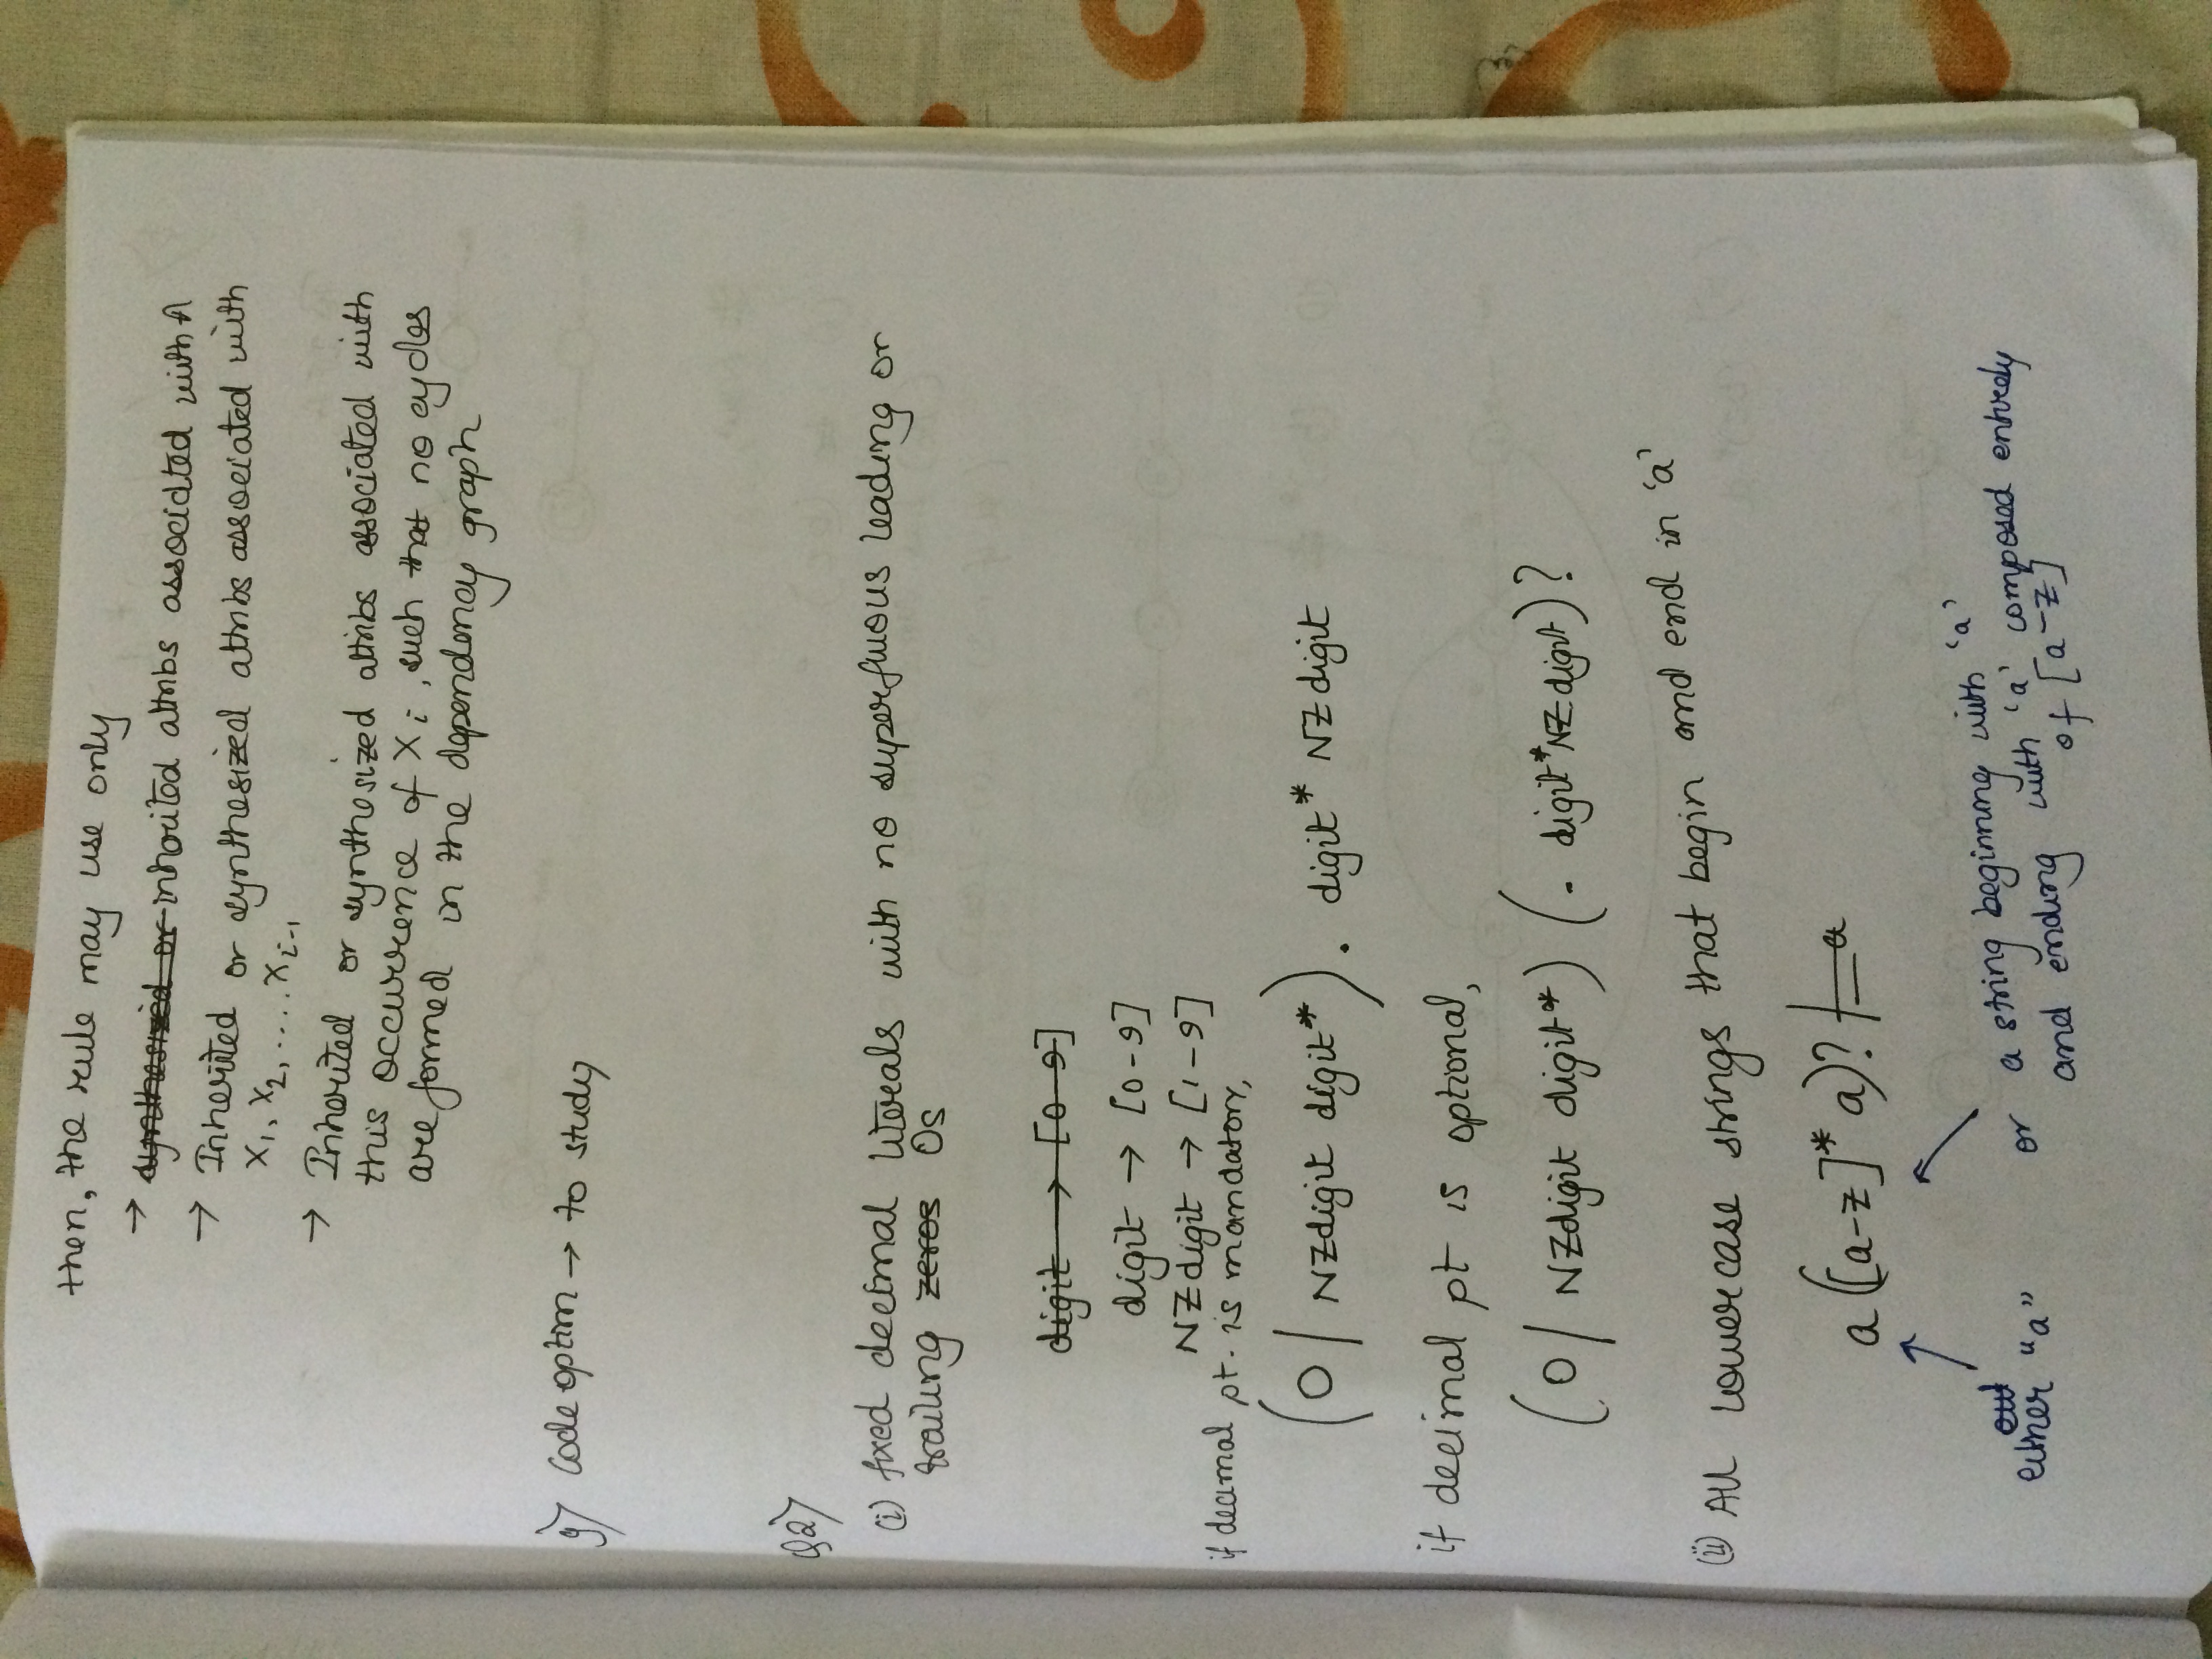 then, the rule may use only
→ synthesized or inherited attribs associated with A
→ Inherited or synthesized attribs associated with
X₁, X₂, .... Xᵢ₋₁
→ Inherited or synthesized attribs associated with
this occurrence of Xᵢ, such that no cycles
are formed in the dependency graph
g) Code optim → to study
Q2)
(i) fixed decimal literals with no superfluous leading or
trailing zeros 0s
digit → [0-9]
digit → [0-9]
NZdigit → [1-9]
if decimal pt. is mandatory,
(0 | NZdigit digit*). digit* NZdigit
if decimal pt is optional,
(0 | NZdigit digit*) (. digit* NZdigit)?
(ii) All lowercase strings that begin and end in 'a'
a([a-z]* a)? | a
either "a" or a string beginning with 'a'
and ending with 'a' composed entirely
of [a-z]